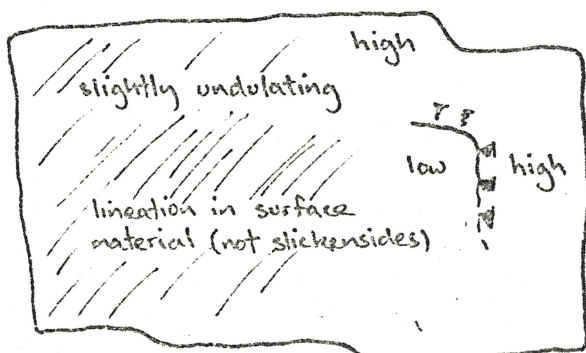 high
slightly undulating
low
high
lineation in surface
material (not slickensides)